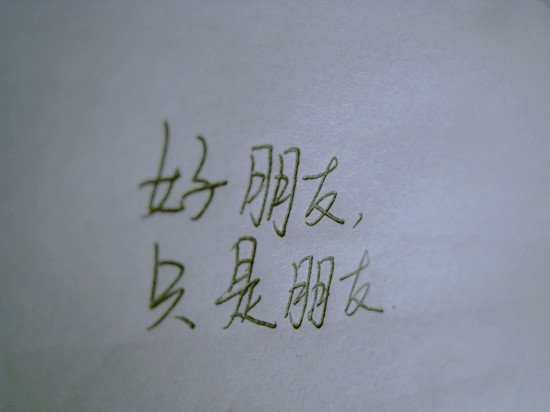 好朋友,
只是朋友